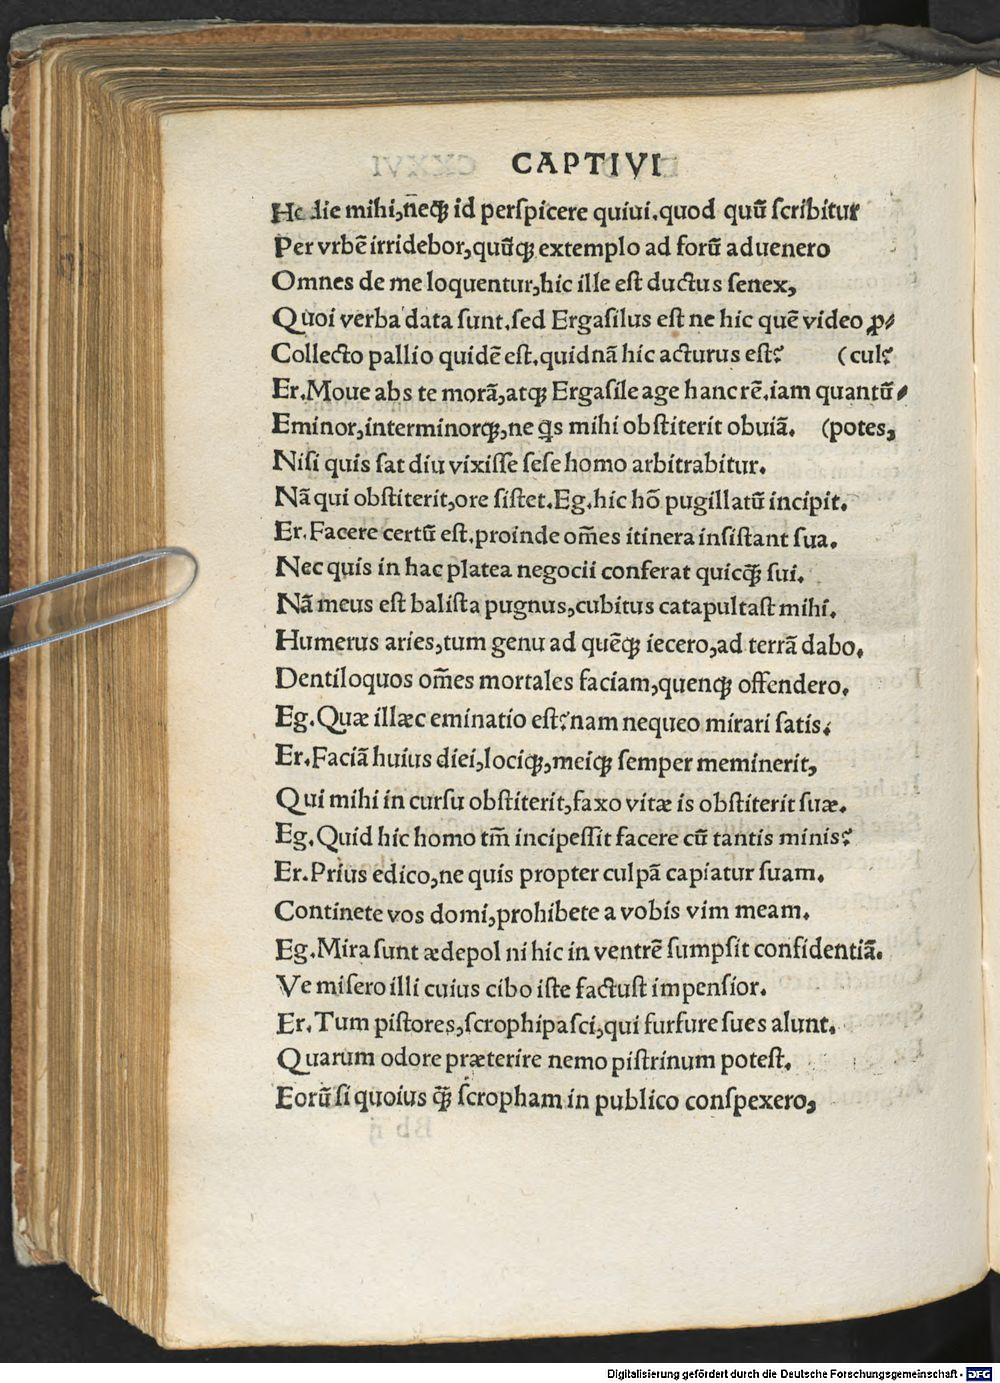 CAPTIVI
Hodie mihi,neq̃ꝫ id perſpicere quiui.quod quū ſcribitur
Per vrbē irridebor,quūqꝫ extemplo ad forū aduenero
Omnes de me loquentur,hic ille eſt ductus ſenex,
Quoi verba data ſunt.ſed Ergaſilus eſt ne hic quē video ꝓ-
Collecto pallio quidē eſt.quidnā hic acturus eſt? (cul?
Er.Moue abs te morā,atqꝫ Ergaſile age hanc rē.iam quantū-
Eminor,interminorqꝫ,ne q̣s mihi obſtiterit obuiā. (potes,
Niſi quis ſat diu vixiſſe ſeſe homo arbitrabitur.
Nā qui obſtiterit,ore ſiſtet.Eg.hic hō pugillatū incipit.
Er.Facere certū eſt.proinde om̄es itinera inſiſtant ſua.
Nec quis in hac platea negocii conferat quicq̃ꝫ ſui.
Nā meus eſt baliſta pugnus,cubitus catapultaſt mihi.
Humerus aries,tum genu ad quēqꝫ iecero,ad terrā dabo.
Dentiloquos om̄es mortales faciam,quenqꝫ offendero.
Eg.Quæ illæc eminatio eſt?nam nequeo mirari ſatis.
Er.Faciā huius diei,lociqꝫ,meiqꝫ ſemper meminerit,
Qui mihi in curſu obſtiterit,faxo vitæ is obſtiterit ſuæ.
Eg.Quid hic homo tm̄ incipeſſit facere cū tantis minis?
Er.Prius edico,ne quis propter culpā capiatur ſuam.
Continete vos domi,prohibete a vobis vim meam.
Eg.Mira ſunt ædepol ni hic in ventrē ſumpſit confidentiā.
Ve miſero illi cuius cibo iſte factuſt impenſior.
Er.Tum piſtores,ſcrophipaſci,qui furfure ſues alunt.
Quarum odore præterire nemo piſtrinum poteſt.
Eorū ſi quoius q̃ꝫ ſcropham in publico conſpexero,
Digitalisierung gefördert durch die Deutsche Forschungsgemeinschaft - DFG